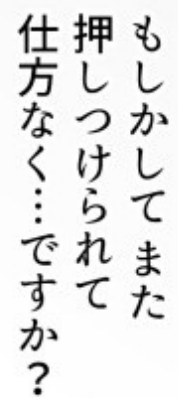 もしかしてまた
押しつけられて
仕方なく…ですか？